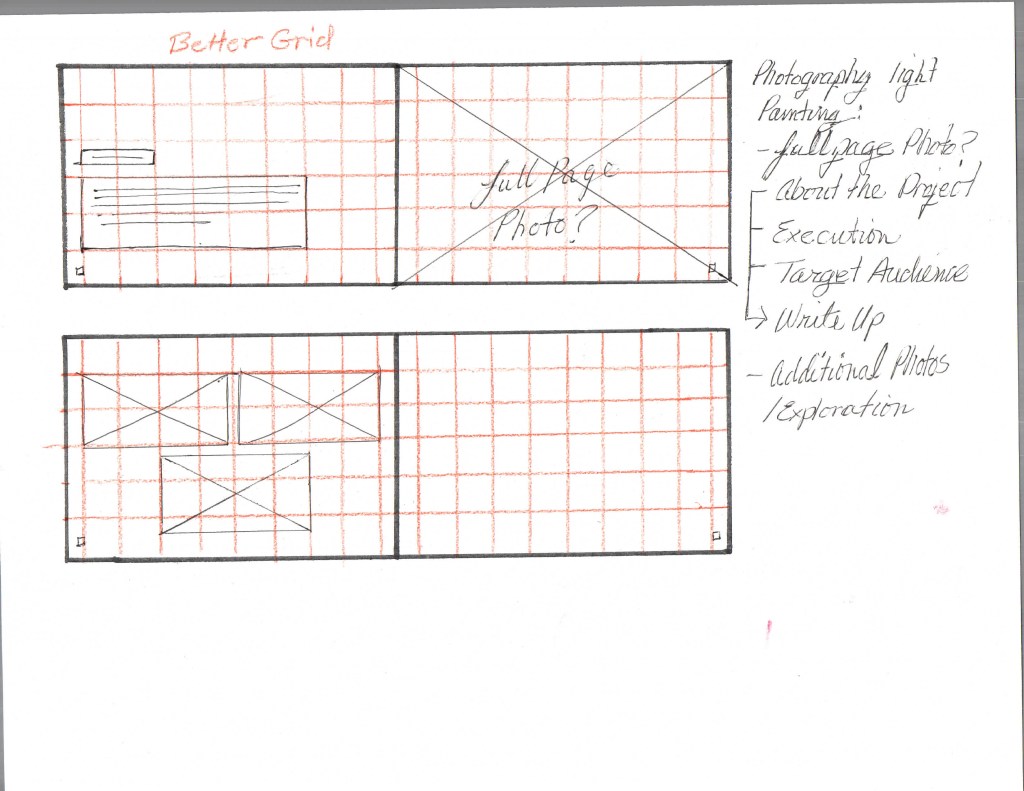 Better Grid
full Page
Photo?
Photography light
Painting:
- full page Photo?
About the Project
- Execution
- Target Audience
→ Write Up
- Additional Photos
/Exploration